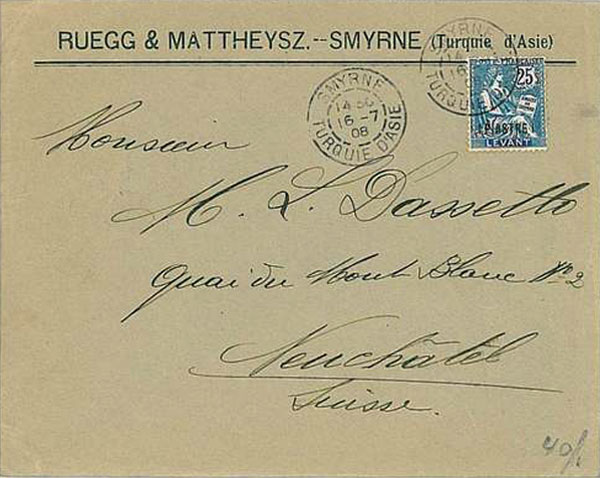 RUEGG & MATTHEYSZ.--SMYRNE (Turquie d'Asie)
SMYRNE
14 30
16 -7
08
TURQUIE D'ASIE
SMYRNE
16
TURQUIE D'ASIE
25
1 PIASTRE
LEVANT
Monsieur
M. L. Dassetto
Quai du Mont Blanc No 2
Neuchâtel
Suisse.